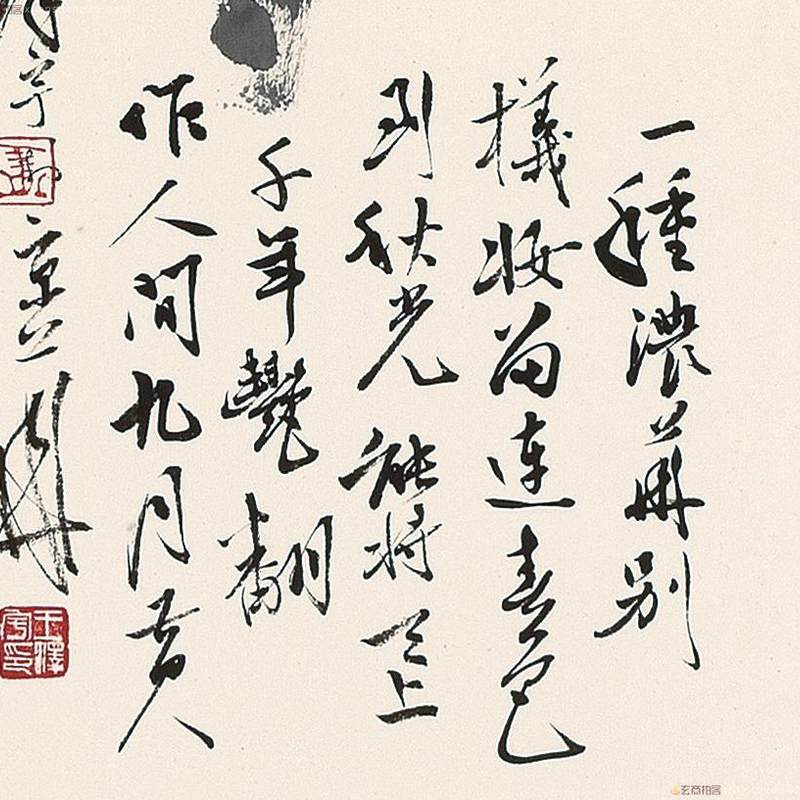 一種濃華别
樣妝留連春色
到秋光能將天上
千年艷翻
作人間九月黃
玄商拍客